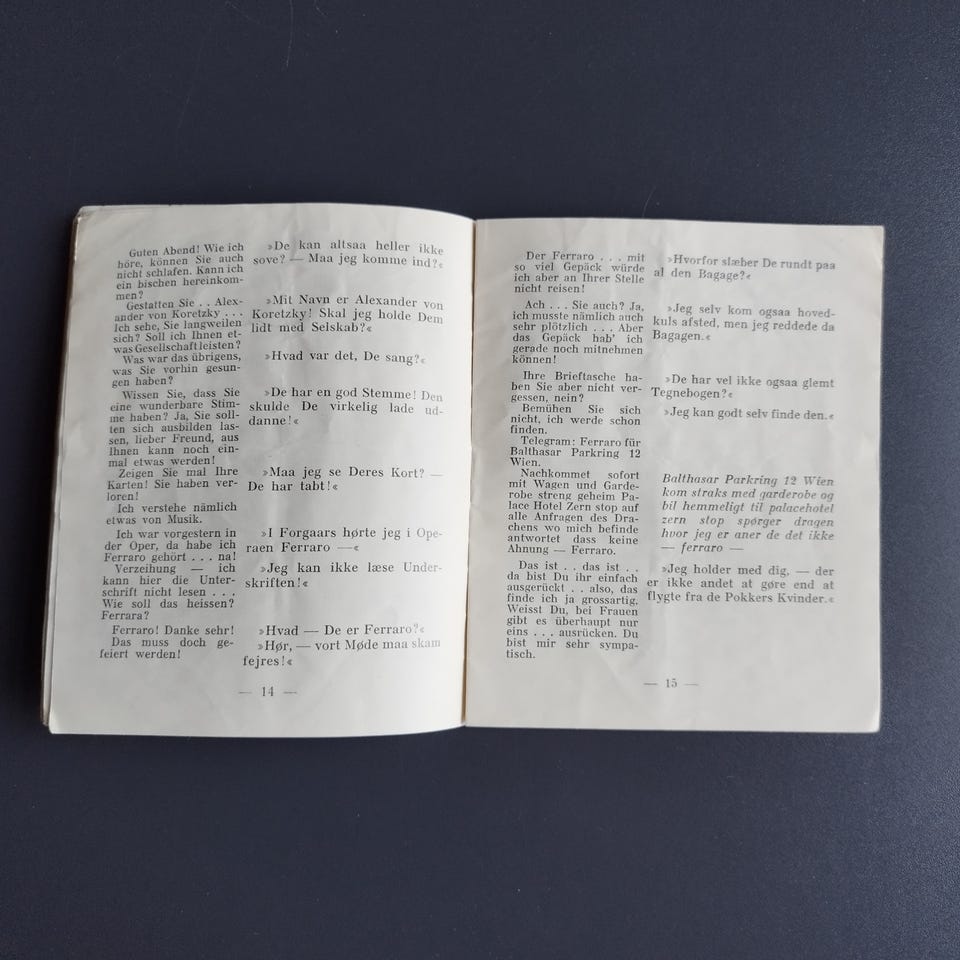 Guten Abend! Wie ich
höre, können Sie auch
nicht schlafen. Kann ich
ein bischen hereinkom-
men?
Gestatten Sie . . Alex-
ander von Koretzky . . .
Ich sehe, Sie langweilen
sich? Soll ich Ihnen et-
was Gesellschaft leisten?
Was war das übrigens,
was Sie vorhin gesun-
gen haben?
Wissen Sie, dass Sie
eine wunderbare Stim-
me haben? Ja, Sie soll-
ten sich ausbilden las-
sen, lieber Freund, aus
Ihnen kann noch ein-
mal etwas werden!
Zeigen Sie mal Ihre
Karten! Sie haben ver-
loren!
Ich verstehe nämlich
etwas von Musik.
Ich war vorgestern in
der Oper, da habe ich
Ferraro gehört . . . na!
Verzeihung — ich
kann hier die Unter-
schrift nicht lesen . . .
Wie soll das heissen?
Ferrara?
Ferraro! Danke sehr!
Das muss doch ge-
feiert werden!
»De kan altsaa heller ikke
sove? — Maa jeg komme ind?«
»Mit Navn er Alexander von
Koretzky! Skal jeg holde Dem
lidt med Selskab?«
»Hvad var det, De sang?«
»De har en god Stemme! Den
skulde De virkelig lade ud-
danne!«
»Maa jeg se Deres Kort? —
De har tabt!«
»I Forgaars hørte jeg i Ope-
raen Ferraro —«
»Jeg kan ikke læse Under-
skriften!«
»Hvad — De er Ferraro?«
»Hør, — vort Møde maa skam
fejres!«
— 14 —
Der Ferraro . . . mit
so viel Gepäck würde
ich aber an Ihrer Stelle
nicht reisen!
Ach . . . Sie auch? Ja,
ich musste nämlich auch
sehr plötzlich . . . Aber
das Gepäck hab' ich
gerade noch mitnehmen
können!
Ihre Brieftasche ha-
ben Sie aber nicht ver-
gessen, nein?
Bemühen Sie sich
nicht, ich werde schon
finden.
Telegram: Ferraro für
Balthasar Parkring 12
Wien.
Nachkommet sofort
mit Wagen und Garde-
robe streng geheim Pa-
lace Hotel Zern stop auf
alle Anfragen des Dra-
chens wo mich befinde
antwortet dass keine
Ahnung — Ferraro.
Das ist . . das ist . .
da bist Du ihr einfach
ausgerückt . . also, das
finde ich ja grossartig.
Weisst Du, bei Frauen
gibt es überhaupt nur
eins . . . ausrücken. Du
bist mir sehr sympa-
tisch.
»Hvorfor slæber De rundt paa
al den Bagage?«
»Jeg selv kom ogsaa hoved-
kuls afsted, men jeg reddede da
Bagagen.«
»De har vel ikke ogsaa glemt
Tegnebogen?«
»Jeg kan godt selv finde den.«
Balthasar Parkring 12 Wien
kom straks med garderobe og
bil hemmeligt til palacehotel
zern stop spørger dragen
hvor jeg er aner de det ikke
— ferraro —
»Jeg holder med dig, — der
er ikke andet at gøre end at
flygte fra de Pokkers Kvinder.«
— 15 —